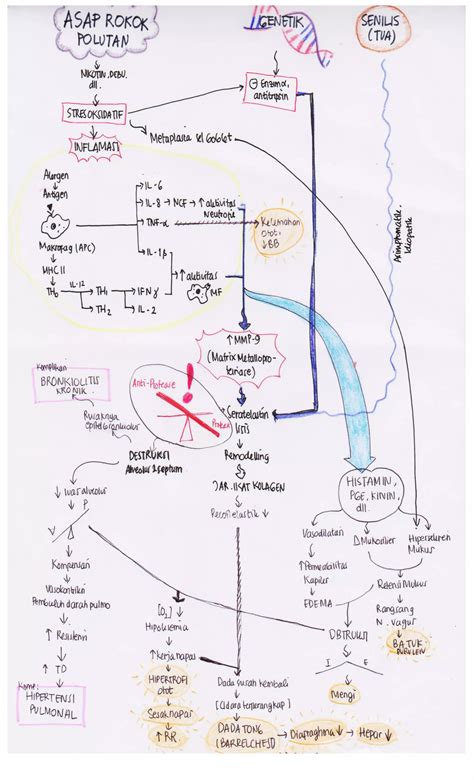 ASAP ROKOK
POLUTAN
GENETIK
SENILIS
(TUA)
NIKOTIN, DEBU,
dll.
⊖ Enzim α,
antitripsin
STRESOKSIDATIF
Metaplasia sel Goblet
INFLAMASI
Alergen
Antigen
Makrofag (APC)
MHC II
TH₀
IL-12
TH₁
TH₂
IFN γ
IL-2
IL-6
IL-8 → NCF → ↑ aktivitas
Neutrofil
TNF-α
IL-1β
↑ aktivitas
MF
Kelemahan
otot
↓ BB
Asimphomatik
Idiopatik
↑ MMP-9
(Matrix Metallopro-
teinase)
Komplikasi
BRONKIOLITIS
KRONIK
Rusaknya
Anti-Protease
Protease
DESTRUKSI
Alveolar & septum
Remodelling
JAR. IKAT KOLAGEN
Recoil elastik ↓
HISTAMIN,
PGE, KININ,
dll.
↓ luas alveolar
V
P
Kompensasi
Vasokontriksi
Pembuluh darah pulmo
↑ Resistensi
↑ TD
Komp:
HIPERTENSI
PULMONAL
↓ [O₂]
Hipoksemia
↑ kerja napas
HIPERTROFI
otot
Sesak napas
↑ RR
Dada susah kembali
[Udara terperangkap]
DADA TONG
(BARRELCHEST)
Diafraghma ↓
Hepar ↓
Vasodilatasi
↑ Permeabilitas
Kapiler
EDEMA
Δ Mukosilier
Hipersekresi
Mukus
Retensi Mukus
Rangsang
N. vagus
BATUK
PURULEN
OBTRUKSI
I
E
Mengi